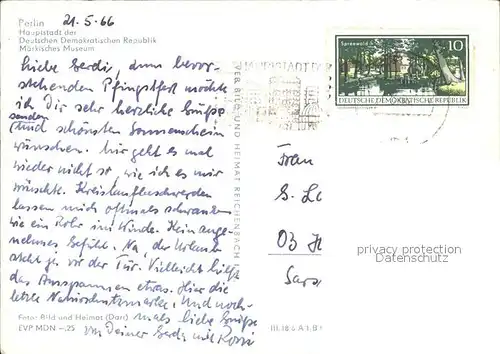 Berlin 21.5.66
Hauptstadt der
Deutschen Demokratischen Republik
Märkisches Museum
Liebe Gerdi, dem bevor-
stehenden Pfingstfest möchte
ich Dir sehr herzliche Grüße
senden
und schönsten Sonnenschein
wünschen. Mir geht es mal
wieder nicht so, wie ich es mir
wünschte. Kreislaufbeschwerden
lassen mich oftmals schwanken
wie ein Rohr im Winde. Kein ange-
nehmes Gefühl. Na, der Urlaub
steht ja vor der Tür. Vielleicht hilft
das Ausspannen etwas. Hier die
letzte Naturschutzmarke. Und noch-
mals liebe Grüße
von Deiner Gerdi mit
Foto: Bild und Heimat (Darr)
EVP MDN -,25
VEB BILD UND HEIMAT REICHENBACH
HAUPTSTADT DER
Spreewald
10
DEUTSCHE DEMOKRATISCHE REPUBLIK
Frau
G.
privacy protection
Datenschutz